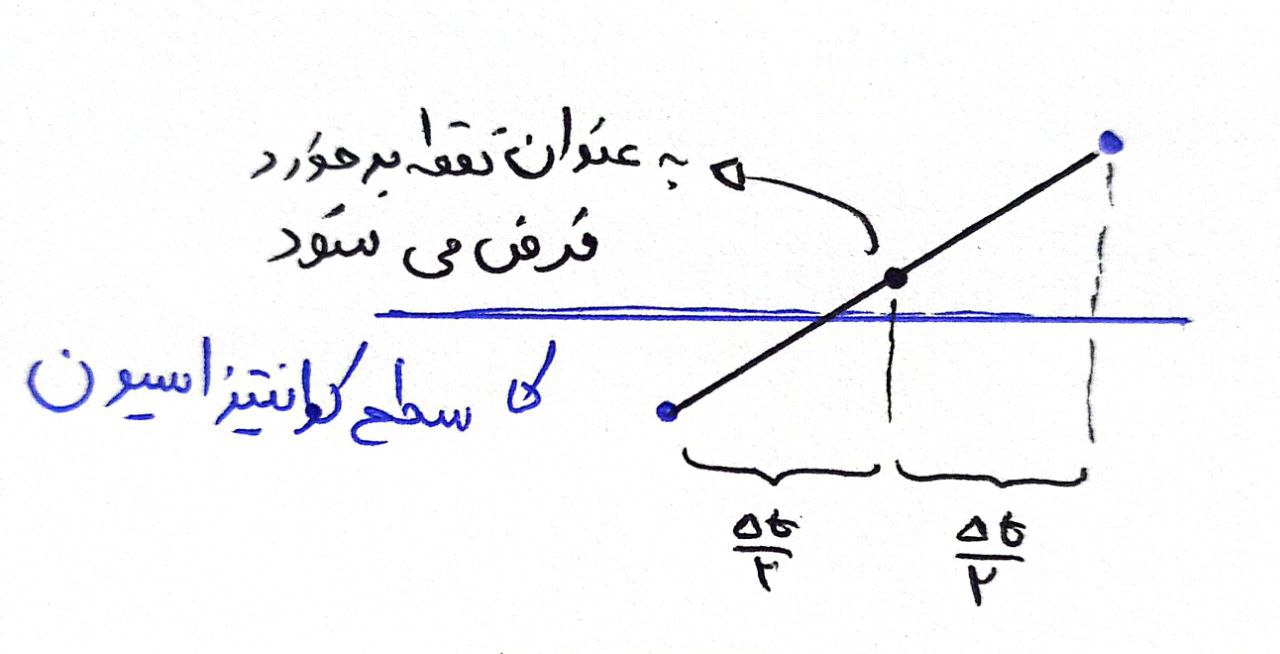 به عنوان نقطه برخورد
فرض می شود
سطح کوانتیزاسیون
Δt/۲
Δt/۲